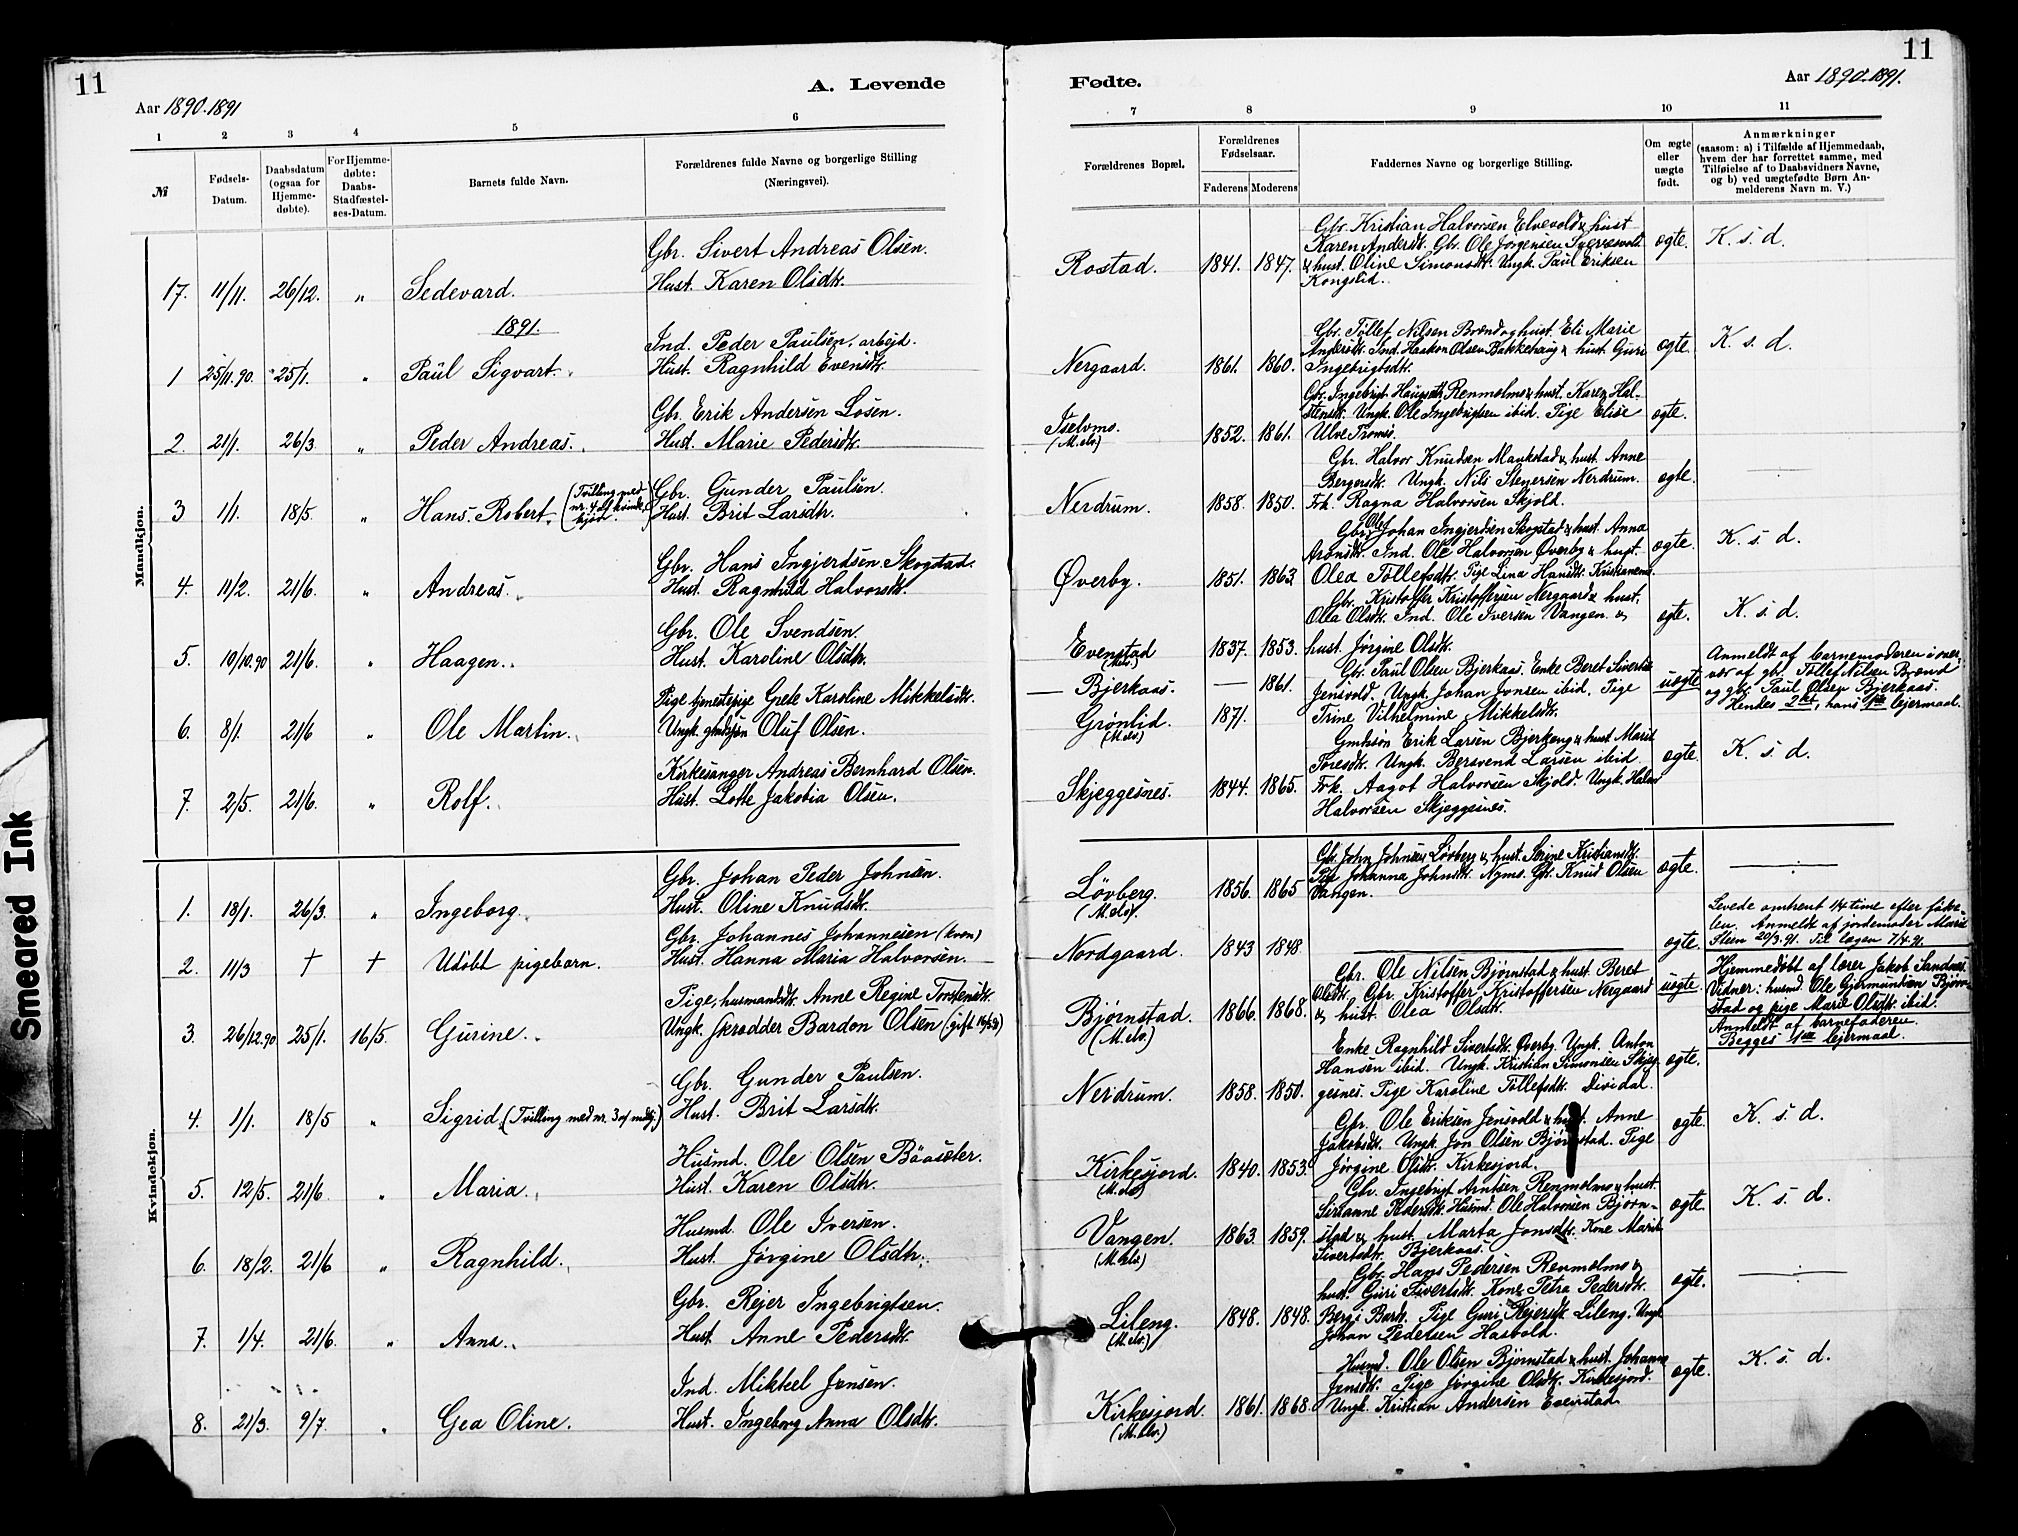 11
A. Levende
Aar 1890.1891
1 2 3 4 5 6
№
Fødsels-
Datum.
Daabsdatum
(ogsaa for
Hjemme-
døbte).
For Hjemme-
døbte:
Daabs-
Stadfæstel-
ses-Datum.
Barnets fulde Navn.
Forældrenes fulde Navne og borgerlige Stilling
(Næringsvei).
Mandkjøn.
Gbr. Sivert Andreas Olsen.
17. 11/11. 26/12. „ Sedevard. Hust. Karen Olsdtr.
1891.
Ind. Peder Paulsen, arbejd.
1 25/11.90. 25/1. „ Paul Sigvart. Hust. Ragnhild Evensdtr.
Gbr. Erik Andersen Losen.
2. 21/1. 26/3. „ Peder Andreas. Hust. Marie Pedersdtr.
(Tvilling med
nr. 4 af kvinde-
kjøn.
Gbr. Gunder Paulsen.
3 1/1. 18/5. „ Hans Robert. Hust. Brit Larsdtr.
Gbr. Hans Ingjerdsen Skogstad.
4. 11/2. 21/6. „ Andreas. Hust. Ragnhild Halvorsdtr.
Gbr. Ole Svendsen.
5. 10/10.90 21/6. „ Haagen. Hust. Karoline Olsdtr.
Pige tjenestepige Grete Karoline Mikkelsdtr.
6. 8/1. 21/6 „ Ole Martin. Ungk. Oluf Olsen.
Kirkesanger Andreas Bernhard Olsen.
7. 2/5. 21/6. „ Rolf. Hust. Lotte Jakobia Olsen.
Kvindekjøn.
Gbr. Johan Peder Johnsen.
1. 18/1. 26/3. „ Ingeborg. Hust. Oline Knudsdtr.
Gbr. Johannes Johannesen (kvæn)
2. 11/3 † † Udøbt pigebarn. Hust. Hanna Maria Halvorsen.
Pige, husmandsdtr. Anne Regine Torstensdtr.
3. 26/12.90 25/1. 16/5. Gurine. Ungk. Bardon Olsen
Gbr. Gunder Paulsen.
4. 1/1. 18/5 „ Sigrid. (Tvilling med nr. 3 af mdkj.) Hust. Brit Larsdtr.
Husmd. Ole Olsen Bäasæter.
5. 12/5. 21/6 „ Maria. Hust. Karen Olsdtr.
Husmd. Ole Iversen.
6. 18/2. 21/6 „ Ragnhild. Hust. Jørgine Olsdtr.
Gbr. Rejer Ingebrigtsen.
7. 1/4. 21/6. „ Anna. Hust. Anne Pedersdtr.
Ind. Mikkel Jensen.
8. 21/3. 9/7. „ Gea Oline. Hust. Ingeborg Anna Olsdtr.
11
Fødte.
Aar 1890.1891.
7 8 9 10 11
Forældrenes Bopæl.
Forældrenes
Fødselsaar.
Faderens Moderens
Faddernes Navne og borgerlige Stilling.
Om ægte
eller
uægte
født.
Anmærkninger
(saasom: a) i Tilfælde af Hjemmedaab,
hvem der har forrettet samme, med
Tilføielse af to Daabsvidners Navne,
og b) ved uægtefødte Børn An-
melderens Navn m. V.)
Gbr. Kristian Halvorsen Elvevold & hust
Karen Andersdtr. Gbr. Ole Jørgensen ægte. K. s. d.
Rostad. 1841. 1847. & hust. Oline Simonsdtr. Ungk. Paul Eriksen
Kongslid.
Gbr. Tøllef Nilsen Brænd og hust. Eli Marie
Andersdtr. Ind. Haakon Olsen Bakkehaug & hust. Guri ægte. K. s. d.
Nergaard. 1861. 1860. Ingebrigtsdtr.
Gbr. Ingebrigt Renmolmo & hust. Karen Hal-
stensdtr. Ungk. Ole Ingebrigtsen ibid. Pige Elise ægte.
1852. 1861. Ulve Tromsø.
(M.elv.)
Gbr. Halvor Knudsen Maukstad & hust. Anne
Bergersdtr. Ungk. Nils Steyersen Nerdrum. ægte.
Nerdrum. 1858. 1850. Frk. Ragna Halvorsen Skjold.
Gbr. Ole Johan Ingjerdsen Skogstad & hust. Anna
Aronsdtr. Ind. Ole Halvorsen Øverby & hust. ægte. K. s. d.
Øverby. 1851. 1863. Olea Tøllefsdtr. Pige Lina Hansdtr.
Gbr. Kristoffer Kristoffersen Nergaard & hust.
Olea Olsdtr. Ind. Ole Iversen Vangen & ægte. K. s. d.
Evenstad 1837. 1853. hust. Jørgine Olsdtr.
(M.elv.)
Gbr. Paul Olsen Bjerkaas. Enke Beret
Bjerkaas. — 1861. Jensvold. Ungk. Johan Jonsen ibid. Pige uægte
Grønlid. 1871. Trine Vilhelmine Mikkelsdtr.
(M.elv.)
Anmeldt af barnemoderen i over-
vær af gbr. Tøllef Nilsen Brænd
og gbr. Paul Olsen Bjerkaas.
Hendes 2det, hans 1ste lejermaal.
Erik Larsen Bjerkeng & hust Marit
Toresdtr. Ungk. Bersvend Larsen ibid. ægte. K. s. d.
Skjeggesnes. 1844. 1865. Frk. Aagot Halvorsen Skjold. Ungk. Halvor
Halvorsen Skjeggesnes.
Gbr. John Johnsen Løvberg & hust. Serine Kristiansdtr.
Pige Johanna Johnsdtr. Gbr. Knud Olsen ægte.
Løvberg. 1856. 1865 Vangen.
(M.elv).
Nordgaard. 1843 1848. ægte.
Levede omtrent 1/4 time efter føds-
len. Anmeldt af jordemoder Marie
Steen 20/3.91. Til lægen 7/4.91.
Gbr. Ole Nilsen Bjørnstad & hust. Beret
Olsdtr. Gbr. Kristoffer Kristoffersen Nergaard uægte.
Bjørnstad. 1866. 1868. & hust. Olea Olsdtr.
(M.elv.)
Hjemmedøbt af lærer Jakob Sandnes.
Vidner: husmd. Ole Gjermundsen Bjørn-
stad og pige Marie Olsdtr. ibid.
Anmeldt af barnefaderen.
Begges 1ste lejermaal.
Enke Ragnhild Sivertsdtr. Øverby. Ungk. Anton
Hansen ibid. Ungk. Kristian Simonsen Skjeg- ægte.
Nerdrum. 1858. 1850. gesnes. Pige Karoline Tøllefsdtr. Dividal.
Gbr. Ole Eriksen Jensvold & hust. Anne
Jakobsdtr. Ungk. Jon Olsen Bjørnstad. Pige ægte. K. s. d.
Kirkesjord. 1840. 1853. Jørgine Olsdtr. Kirkesjord.
(M.elv)
Gbr. Ingebrigt Arntsen Renmolmo & hust.
Pedersdtr. Husmd. Ole Halvorsen Bjørn- ægte. K. s. d.
Vangen. 1863. 1859. stad & hust. Marta Jonsdtr. Kone Marit
(M.elv.) Sivertsdtr. Bjerkaas.
Gbr. Hans Pedersen Renmolmo &
hust. Guri Sivertsdtr. Kone Petra Pedersdtr. ægte.
Lileng. 1848. 1848. Berg i Bardo. Pige Guri Rejersdtr. Lileng. Ungk.
(M.elv.) Johan Pedersen Hasvold.
Husmd. Ole Olsen Bjørnstad & hust. Johanna
Jensdtr. Pige Jørgine Olsdtr. Kirkesjord. ægte. K. s. d.
Kirkesjord. 1861. 1868. Ungk. Kristian Andersen Evenstad
(M.elv.)
Smeared Ink